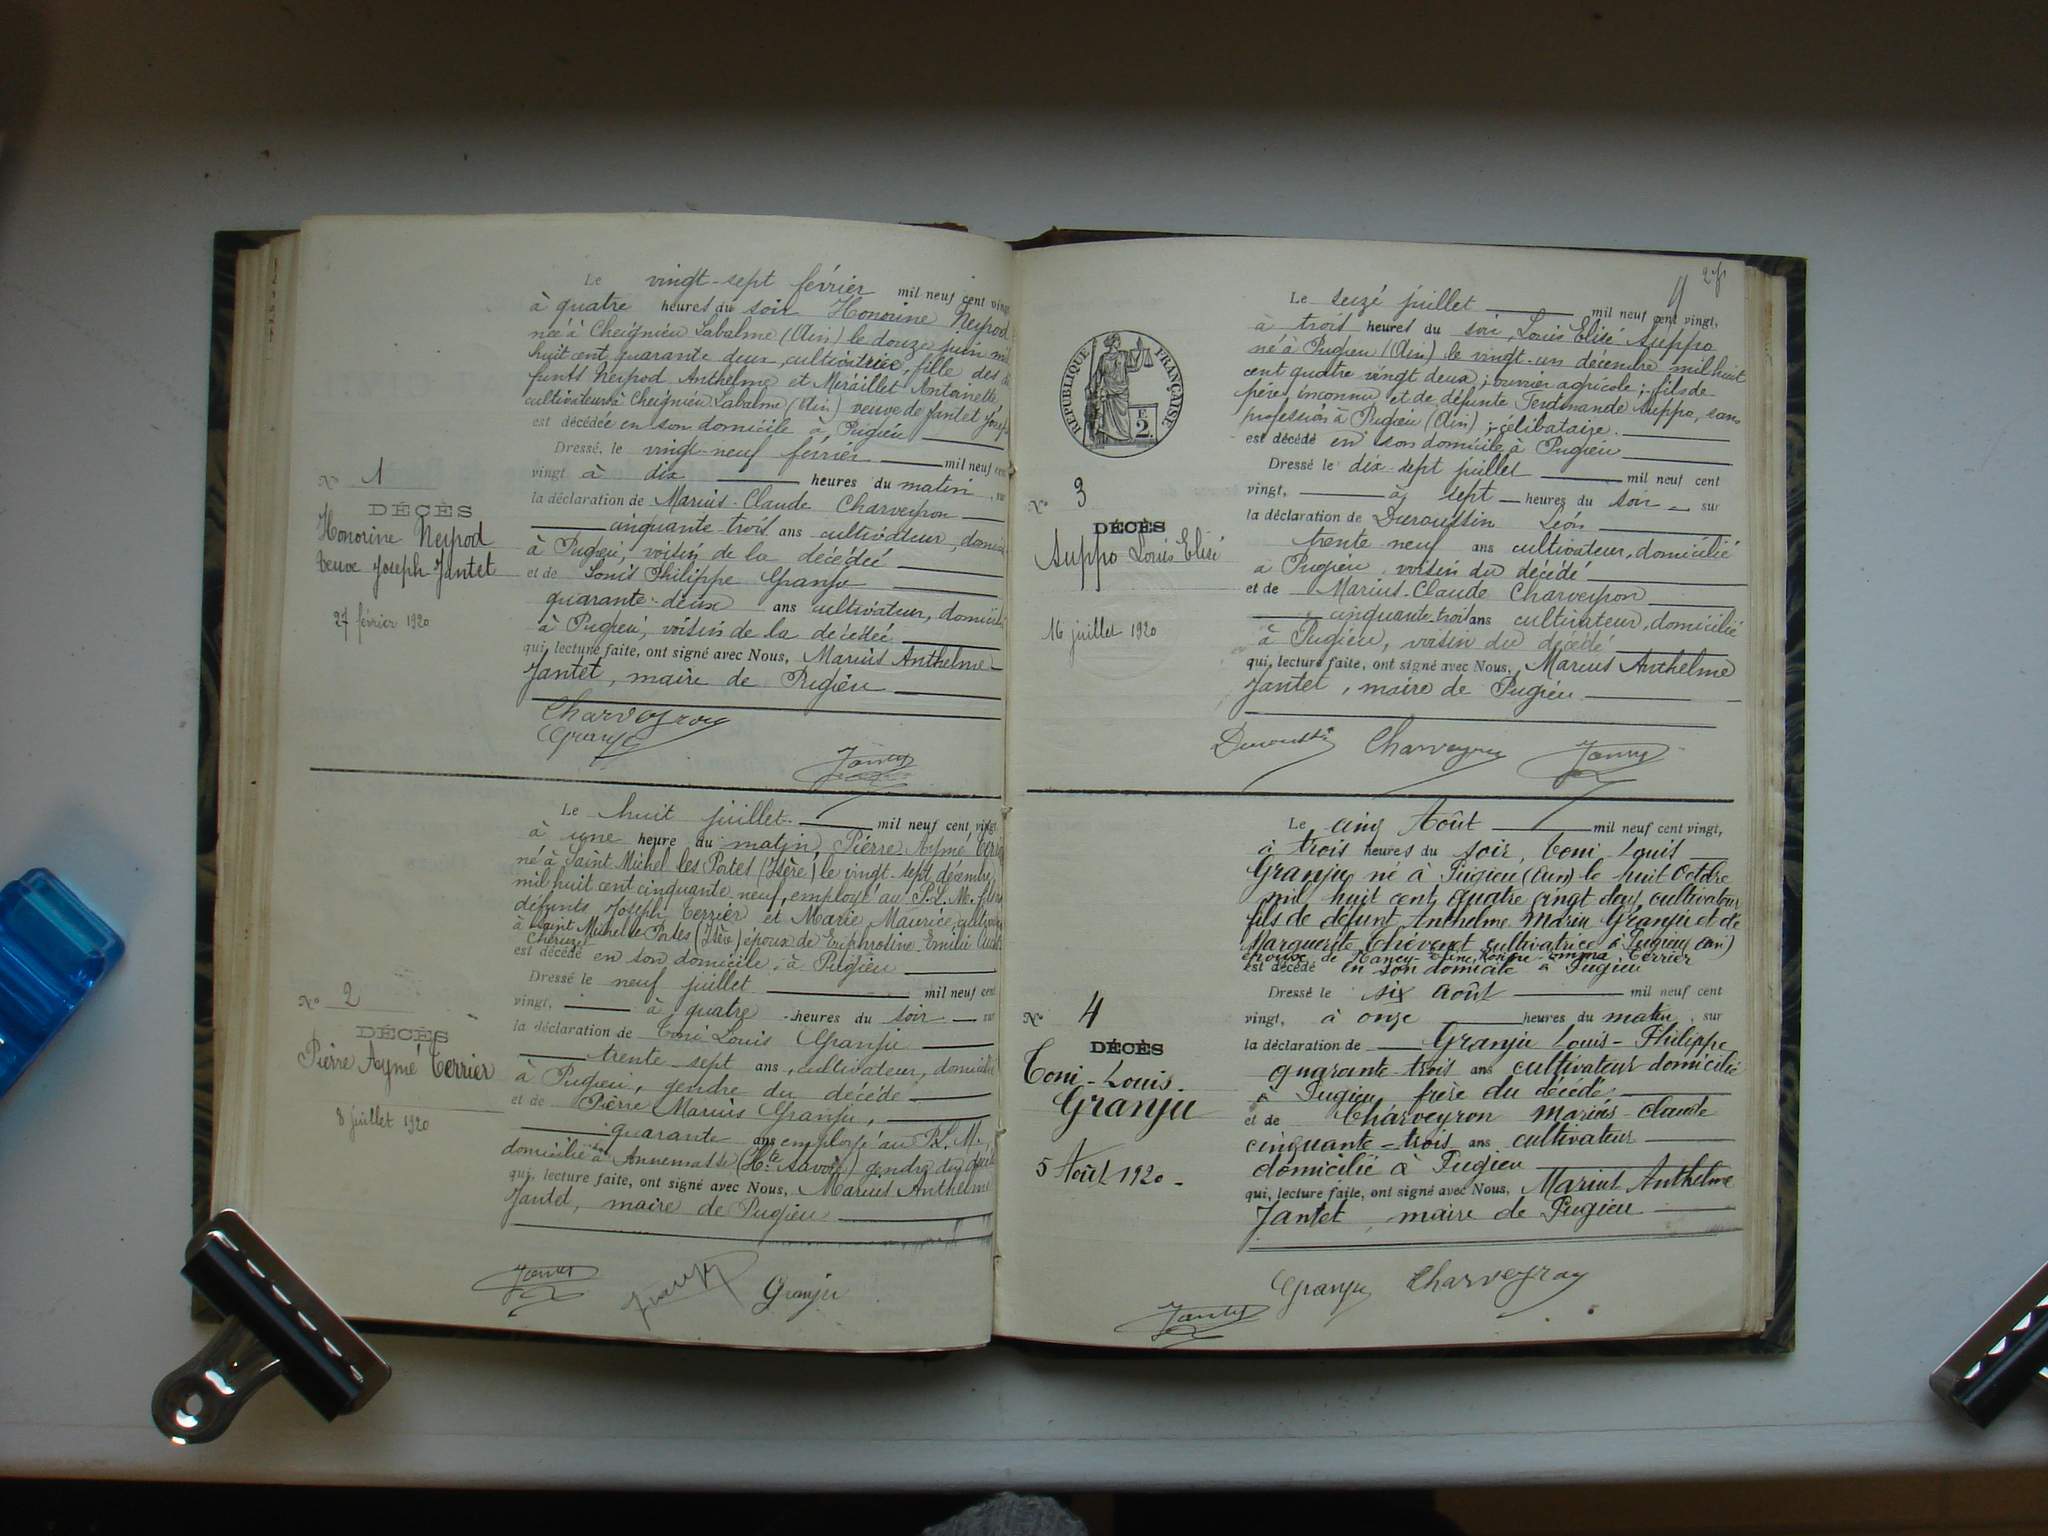 Le vingt-sept février mil neuf cent vingt
à quatre heures du soir Honorine Neyrod
née à Cheignieu Labalme (Ain) le douze juin mil
huit cent quarante deux, cultivatrice, fille des dé
funts Neyrod Anthelme et Miraillet Antoinette
cultivateurs à Cheignieu Labalme (Ain) veuve de Jantet Joseph
est décédée en son domicile à Pugieu
Dressé, le vingt-neuf février mil neuf cent
vingt à dix heures du matin, sur
la déclaration de Marius-Claude Charveyron
cinquante-trois ans cultivateur, domicilié
à Pugieu, voisin de la décédée
et de Louis Philippe Granju
quarante-deux ans cultivateur, domicilié
à Pugieu, voisin de la décédée
qui, lecture faite, ont signé avec Nous, Marius Anthelme
Jantet, maire de Pugieu
Charveyron
Granju
Jantet
No 1
DÉCÈS
Honorine Neyrod
veuve Joseph Jantet
27 février 1920
Le huit juillet mil neuf cent vingt
à une heure du matin, Pierre Aymé Terrier
né à Saint Michel les Portes (Isère) le vingt-sept décembre
mil huit cent cinquante neuf, employé au P.L.M. fils des
défunts Joseph Terrier et Marie Maurice, cultivateurs
à Saint Michel les Portes (Isère) époux de Euphrosine Emilie
est décédé en son domicile, à Pugieu
Dressé le neuf juillet mil neuf cent
vingt, à quatre heures du soir sur
la déclaration de Toni Louis Granju
trente sept ans, cultivateur, domicilié
à Pugieu, gendre du décédé
et de Pierre Marius Granju,
quarante ans employé au P.L.M.
domicilié à Annemasse (Hte Savoie) gendre du décédé
qui, lecture faite, ont signé avec Nous, Marius Anthelme
Jantet, maire de Pugieu
Jantet Granju Granju
No 2
DÉCÈS
Pierre Aymé Terrier
8 juillet 1920
Le seize juillet mil neuf cent vingt,
à trois heures du soir, Louis Elisé Auppo
né à Pugieu (Ain) le vingt-un décembre mil huit
cent quatre vingt deux; ouvrier agricole; fils de
père inconnu et de défunte Ferdinande Auppo, sans
profession à Pugieu (Ain); célibataire.
est décédé en son domicile à Pugieu
Dressé le dix-sept juillet mil neuf cent
vingt, à sept heures du soir sur
la déclaration de Duroussin Léon
trente neuf ans cultivateur, domicilié
à Pugieu voisin du décédé
et de Marius-Claude Charveyron
cinquante-trois ans cultivateur, domicilié
à Pugieu, voisin du décédé
qui, lecture faite, ont signé avec Nous, Marius Anthelme
Jantet, maire de Pugieu
Duroussin Charveyron Jantet
RÉPUBLIQUE FRANÇAISE
E
2
No 3
DÉCÈS
Auppo Louis Elisé
16 juillet 1920
Le cinq Août mil neuf cent vingt,
à trois heures du soir, Toni Louis
Granju né à Pugieu (Ain) le huit Octobre
mil huit cent quatre vingt deux cultivateur
fils de défunt Anthelme Marin Granju et de
Marguerite Thévenet cultivatrice à Pugieu (Ain)
époux de Nancy Terrier
est décédé en son domicile à Pugieu
Dressé le six Août mil neuf cent
vingt, à onze heures du matin, sur
la déclaration de Granju Louis-Philippe
quarante-trois ans cultivateur domicilié
à Pugieu frère du décédé
et de Charveyron Marius-Claude
cinquante-trois ans cultivateur
domicilié à Pugieu
qui, lecture faite, ont signé avec Nous, Marius Anthelme
Jantet, maire de Pugieu
Granju Charveyron
Jantet
No 4
DÉCÈS
Toni-Louis
Granju
5 Août 1920